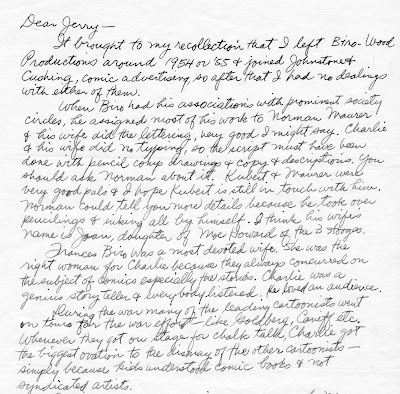 Dear Jerry—
It brought to my recollection that I left Biro-Wood
Productions around 1954 or '55 & joined Johnstone &
Cushing, comic advertising, so after that I had no dealings
with either of them.
When Biro had his associations with prominent society
circles, he assigned most of his work to Norman Maurer
& his wife did the lettering, very good I might say. Charlie
& his wife did no typing, so the script must have been
done with pencil comp drawings & copy & descriptions. You
should ask Norman about it. Kubert & Maurer were
very good pals & I hope Kubert is still in touch with him.
Norman could tell you more details because he took over
pencilings & inking all by himself. I think his wife's
name is Joan, daughter of Moe Howard of the 3 Stooges.
Frances Biro was a most devoted wife. She was the
right woman for Charlie because they always concurred on
the subject of comics especially the stories. Charlie was a
genius story teller & everybody listened. He loved an audience.
During the war many of the leading cartoonists went
on tours for the war effort — like Goldberg, Caniff, etc.
Whenever they got on stage for chalk talk, Charlie got
the biggest ovation to the dismay of the other cartoonists —
simply because kids understood comic books & not
syndicated artists.